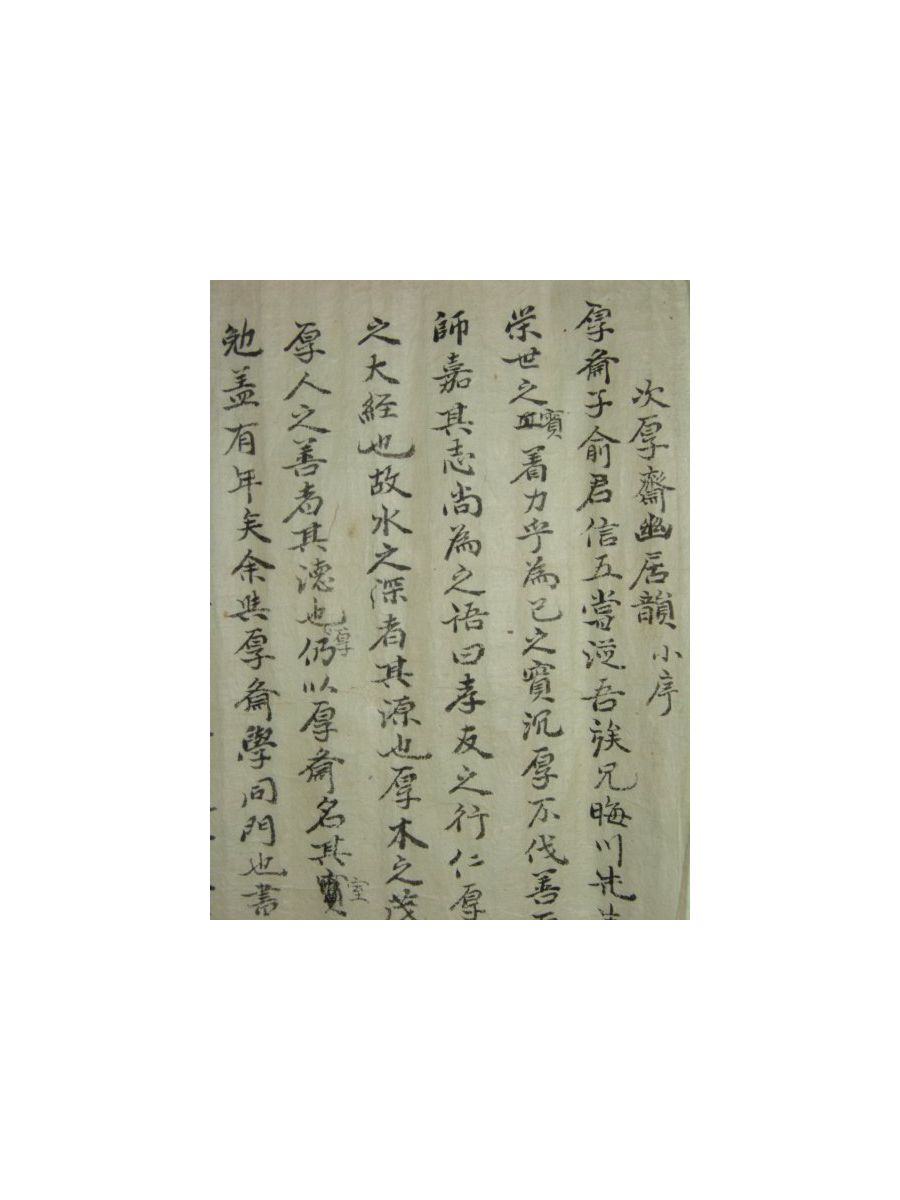 次厚齋幽居韻 小序
厚齋子俞君信五嘗從吾族兄晦川先生
榮世之寶着力乎為己之實沉厚不伐善
師嘉其志尚為之語曰孝友之行仁厚
之大經也故水之深者其源也厚木之茂
厚人之善者其德也厚仍以厚齋名其室
勉盖有年矣余與厚齋學同門也書